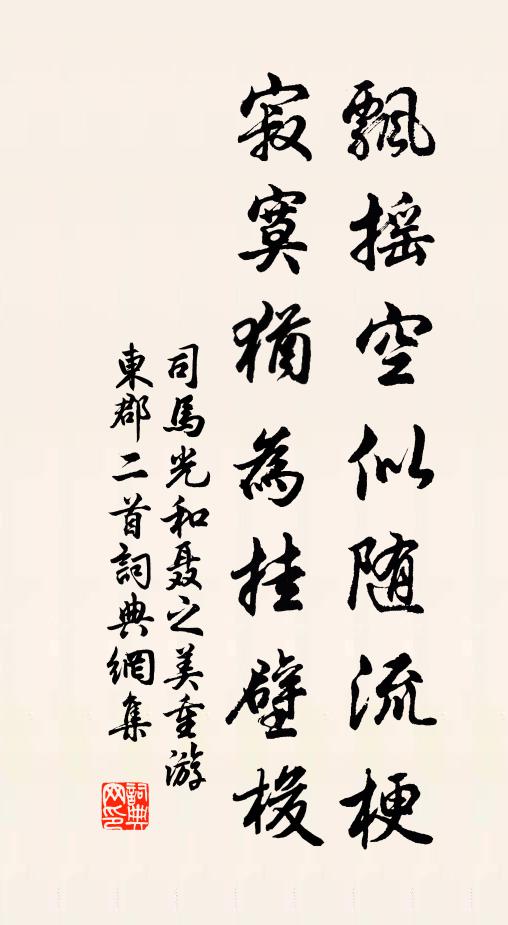 飄摇空似随流梗
寂寞猶為挂壁梭
司馬光和聂之美重游
東郡二首詞典網集
詞典网印